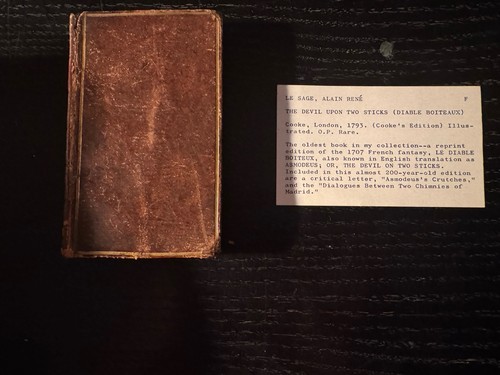 LE SAGE, ALAIN RENÉ F
THE DEVIL UPON TWO STICKS (DIABLE BOITEAUX)
Cooke, London, 1793. (Cooke's Edition) Illus-
trated. O.P. Rare.
The oldest book in my collection--a reprint
edition of the 1707 French fantasy, LE DIABLE
BOITEUX, also known in English translation as
ASMODEUS; OR, THE DEVIL ON TWO STICKS.
Included in this almost 200-year-old edition
are a critical letter, "Asmodeus's Crutches,"
and the "Dialogues Between Two Chimnies of
Madrid."